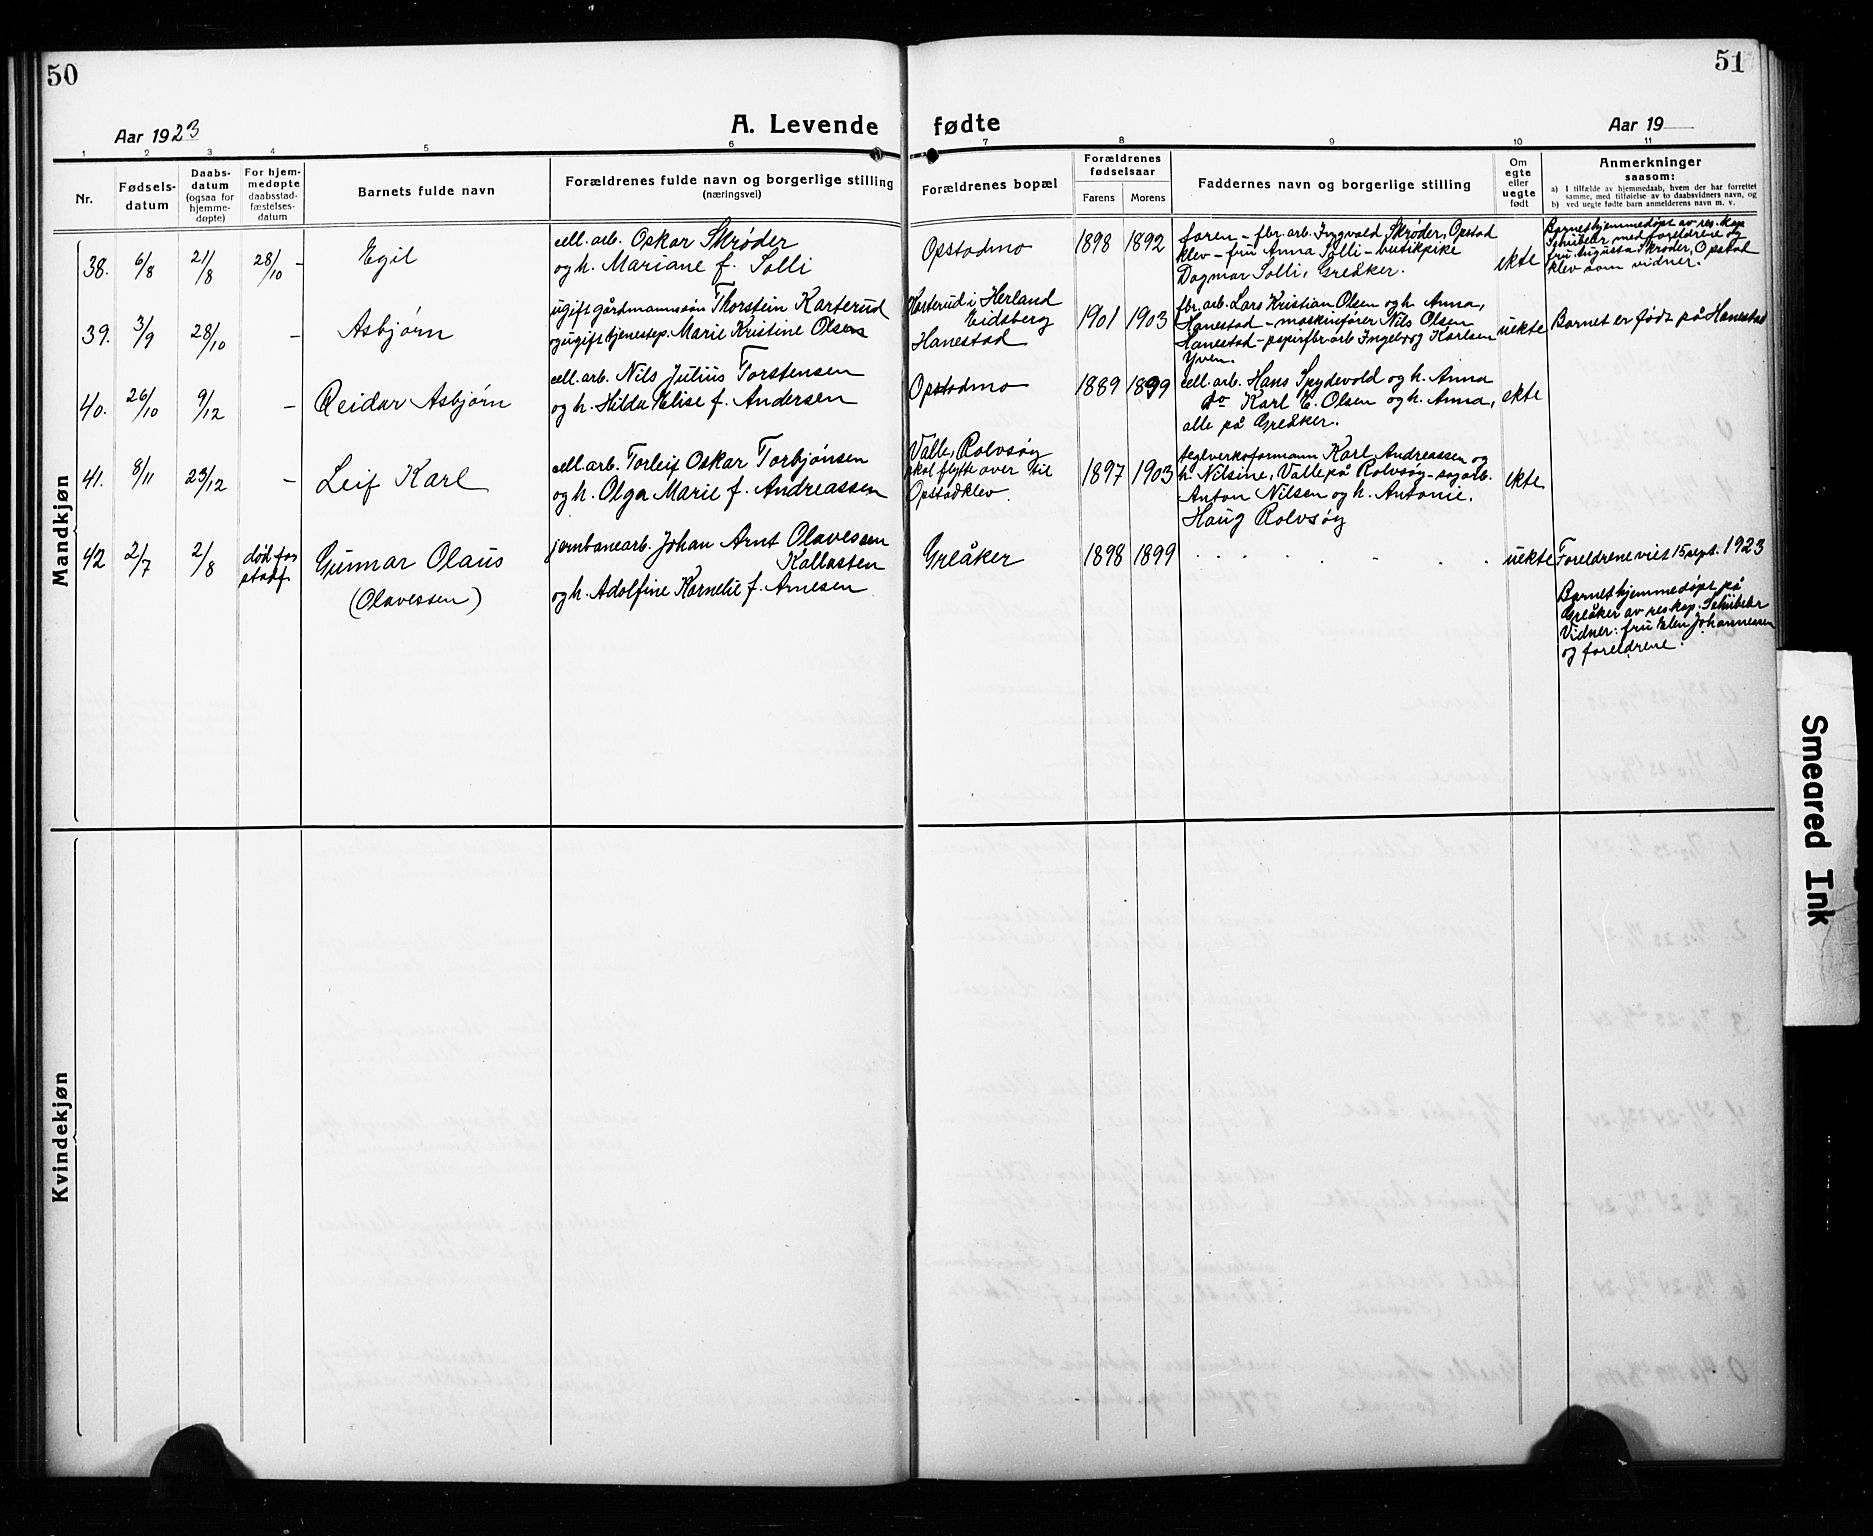 50
51
Aar 1923
A. Levende fødte
Aar 19
1 2 3 4 5 6 7 8 9 10 11
Nr.
Fødsels-
datum
Daabs-
datum
(ogsaa for
hjemme-
døpte)
For hjem-
medøpte
daabsstad-
fæstelses-
datum
Barnets fulde navn
Forældrenes fulde navn og borgerlige stilling
(næringsvei)
Forældrenes bopæl
Forældrenes
fødselsaar
Farens
Morens
Faddernes navn og borgerlige stilling
Om
egte
eller
uegte
født
Anmerkninger
saasom:
a) I tilfælde av hjemmedaab, hvem der har forrettet
samme, med tilføielse av to daabsvidners navn, og
b) ved uegte fødte barn anmelderens navn m. v.
Mandkjøn
38. 6/8 21/8 28/10 –
Egil
cell. arb. Oskar Skrøder
og h. Mariane f. Solli
Opstadmo
1898 1892
faren – fbr. arb. Ingvald Skrøder, Opstad
klev – fru Anna Solli – butikpike
Dagmar Solli, Greåker.
ekte
Barnet hjemmedøpt av res. kap
Schübeler med foreldrene og
fru Augusta Skrøder, Opstad
klev som vidner.
39. 3/9 28/10 –
Asbjørn
ugift gårdmannssøn Thorstein Karterud
og ugift tjenestep. Marie Kristine Olsen
Karterud i Herland
Eidsberg
Hanestad
1901 1903
fbr. arb. Lars Kristian Olsen og h. Anna,
Hanestad – maskinfører Nils Olsen
Hanestad – papirfbr. arb Ingeborg Karlsen
Yven.
uekte
Barnet er født på Hanestad
40. 26/10 9/12 –
Reidar Asbjørn
cell. arb. Nils Julius Torstensen
og h. Hilda Elise f. Andersen
Opstadmo
1889 1899
cell. arb. Hans Spydevold og h. Anna
do Karl E. Olsen og h. Anna,
alle på Greåker.
ekte
41. 8/11 23/12 –
Leif Karl
cell. arb. Torleif Oskar Torbjønsen
og h. Olga Marie f. Andreassen
Valle, Rolvsøy
skal flytte over til
Opstadklev.
1897 1903
teglverksformann Karl Andreassen og
h. Nilsine, Valle på Rolvsøy – sagarb.
Anton Nilsen og h. Antonie.
Haug Rolvsøy
ekte
42 2/7 2/8
død før
stadf.
Gunnar Olaus
(Olavessen)
jernbanearb. Johan Arnt Olavessen
Kallasten
og h. Adolfine Kornelie f. Arnesen
Greåker
1898 1899
uekte
Foreldrene viet 15 sept. 1923
Barnet hjemmedøpt på
Greåker av res kap. Schübeler
Vidner: fru Elen Johannessen
og foreldrene.
Kvindekjøn
Smeared Ink